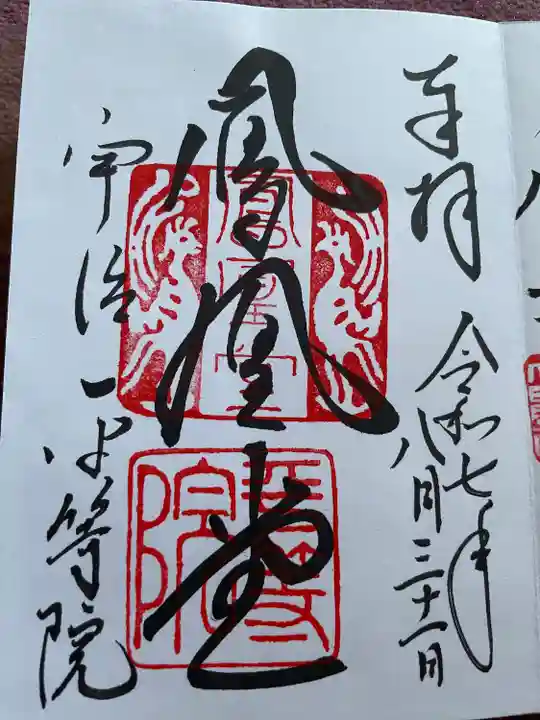 奉拝
令和七年
八月三十一日
鳳凰堂
鳳凰堂
平等院
宇治 平等院